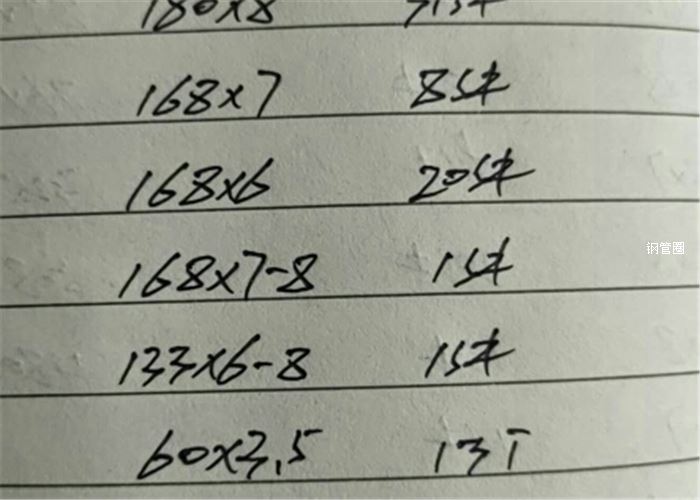 180x8
168x7 8支
168x6 20支
168x7-8 1支
钢管圈
133x6-8 1支
60x3.5 13T